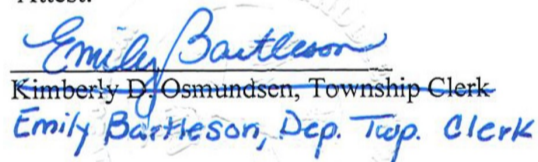 Attest:
Emily Bartleson
Kimberly D. Osmundsen, Township Clerk
Emily Bartleson, Dep. Twp. Clerk